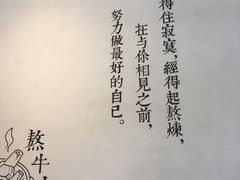 得住寂寞，經得起熬煉，
在与你相見之前，
努力做最好的自己。
熬牛，